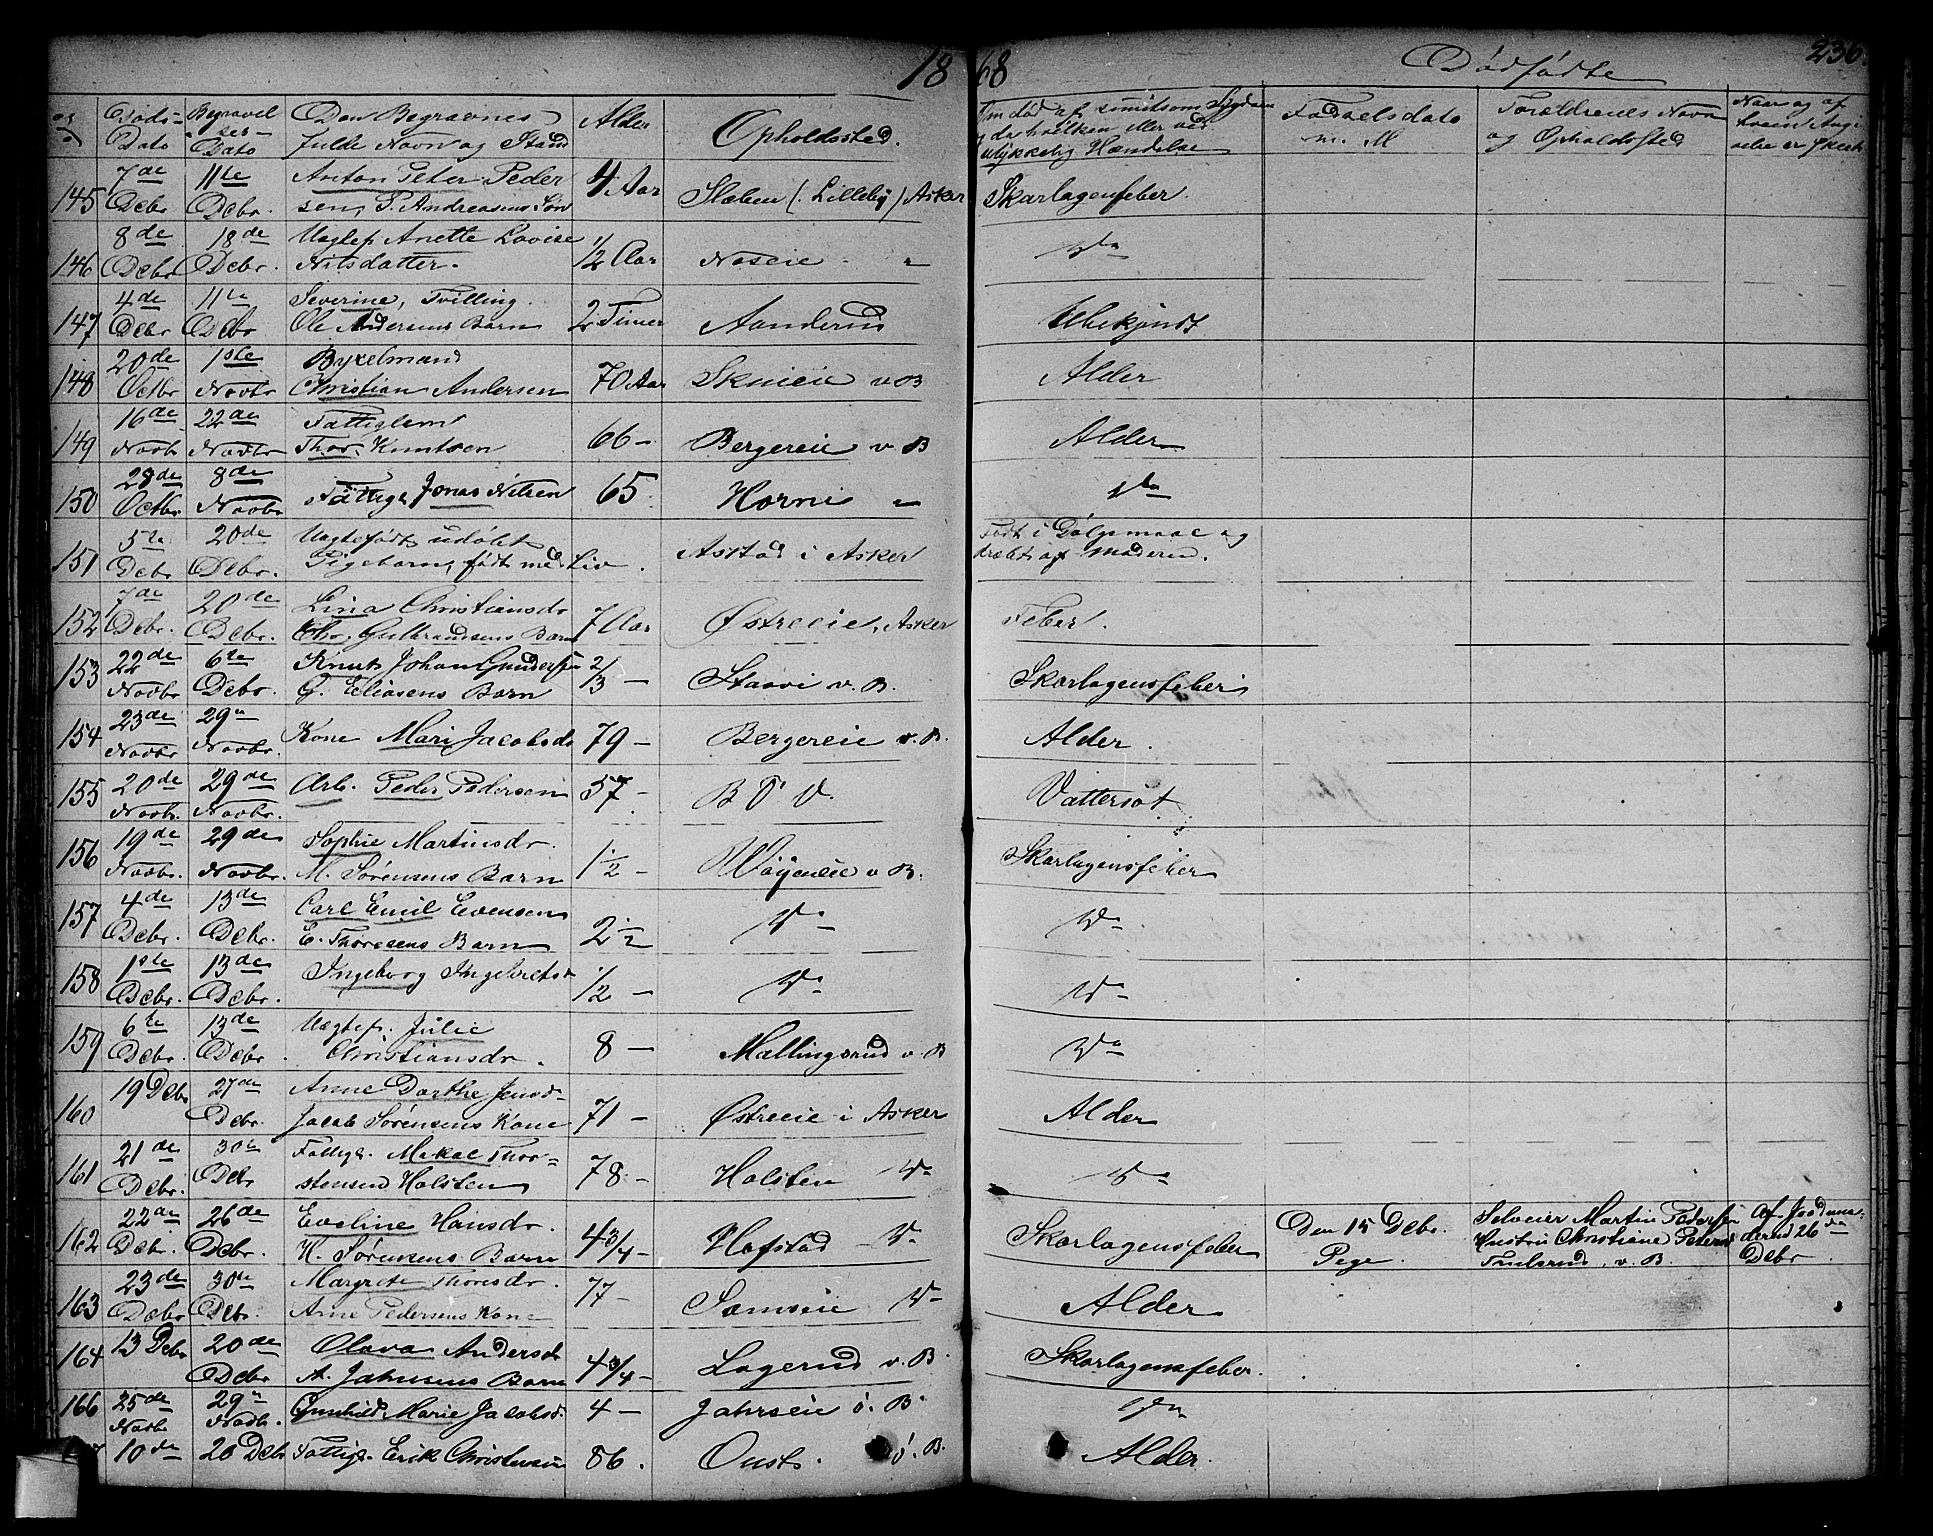 18
68 Dødfødte 236.
Døds- Dato
Begravel ses- Dato
Den Begravnes fulde Navn og Stand
Alder
Opholdssted.
Om død af smitsom Sygdom og da hvilken eller ved ulykkelig Hændelse
Fødselsdato
Forældrenes Navn og Opholdssted
Naar og af hvem
145 7de Debr 11te Debr. Anton Peter Peder sen, P. Andreasens Søn 4 Aar Slæben (Lilleby) Asker Skarlagensfeber.
146 8de Debr 18de Debr. Uægtef. Anette Lovise Nilsdatter. 1/2 Aar Noseie " Do
147 4de Debr 11te Debr Severine, Tvilling. Ole Andersens Barn 2 Timer Aanderud Ubekjendt
148 20de Octbr 1ste Novbr Christian Andersen 70 Aar Skuieie v B Alder
149 16de Novb. 22de Novbr Fattiglem Thor Knutsen 66 - Bergereie v B Alder
150 28de Octbr 8de Novbr. Fattigl. Jonas Nilsen 65. Horni " Do
151 5te Debr 20de Debr. Uægtefødt udøbt Pigebarn, født med Liv. Astad i Asker Født i Dølgsmaal og dræbt af Moderen.
152 7de Debr. 20de Debr. Lina Christiansdr Chr. Gulbrandsens Barn 7 Aar Østreeie, Asker Feber.
153 22de Novbr 6te Debr. Knut Johan Gundersen G. Eliasens Barn 2/3 - Staavi v. B. Skarlagensfeber
154 23de Novbr 29 Novbr. Kone Mari Jacobsdr 79 - Bergereie v. B. Alder.
155 20de Novb. 29de Novbr. Arb. Peder Pedersen 57 - B V. Vattersot
156 19de Novbr. 29de Novbr. Sophie Martinsdr. M. Sørensens Barn 1 1/2 - Wøyeneie v B. Skarlagensfeber
157 4de Debr. 13de Debr. Carl Emil Evensen E. Thoresens Barn 2 1/2 Do Do
158 1ste Debr. 13de Debr. Ingeborg Ingebretsd 1/2 - Do Do
159 6te Debr. 13de Debr. Uægtef. Julie Christiansdr. 8 - Mallingsrud v. B Do
160 19 Debr 27de Debr. Anne Dorthe Jensd. Jacob Sørensens Kone 71 - Østreeie i Asker Alder
161 21de Debr. 30te Debr Fattigl. Thor- stensen Holsten 78. - Holsten Do Do
162 22de Debr. 26de Debr. Eveline Hansdr. H. Sørensens Barn 4 3/4 - Hofstad Do Skarlagensfeber Den 15 Debr. Pige. Selveier Martin Pedersen Hustru Christiane v. B. Af Jordmo- deren d 26de Debr
163 23de Debr 30te Debr. Margrete Thoresdr. Arne Pedersens Kone 77 - Semseie Do Alder
164 13 Debr 20de Debr Olava Andersdr A. Jahnsens Barn 4 3/4 - Lagerud v. B. Skarlagensfeber.
166 25de Novbr 29 Novbr. Gunhild Marie Jacobsd. 4 - Jahrseie ø. B. Do
10de 20 Debr Fattigl. Erik Christensen 86. Oust. ø. B. Alder.